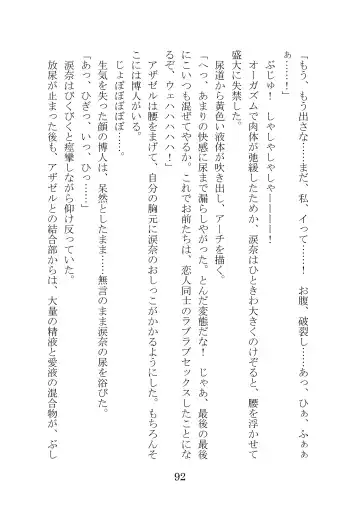 「もう、もう出さな……まだ、私、イって……！　お腹、破裂し……あっ、ひぁ、ふぁぁ
ぁ……！」
ぷじゅ！　しゃしゃしゃしゃーーーーー！
オーガズムで肉体が弛緩したためか、涙奈はひときわ大きくのけぞると、腰を浮かせて
盛大に失禁した。
尿道から黄色い液体が吹き出し、アーチを描く。
「へっ、あまりの快感に尿まで漏らしやがった。とんだ変態だな！　じゃあ、最後の最後
にこいつも混ぜてやるか。これでお前たちは、恋人同士のラブラブセックスしたことにな
るぞ、ウェハハハハハ！」
アザゼルは腰をまげて、自分の胸元に涙奈のおしっこがかかるようにした。もちろんそ
こには博人がいる。
じょぼぼぼぼぼ……。
生気を失った顔の博人は、呆然としたまま……無言のまま涙奈の尿を浴びた。
「あっ、ひぎっ、いっ、ひっ……」
涙奈はびくびくと痙攣しながら仰け反っていた。
放尿が止まった後も、アザゼルとの結合部からは、大量の精液と愛液の混合物が、ぶし
92